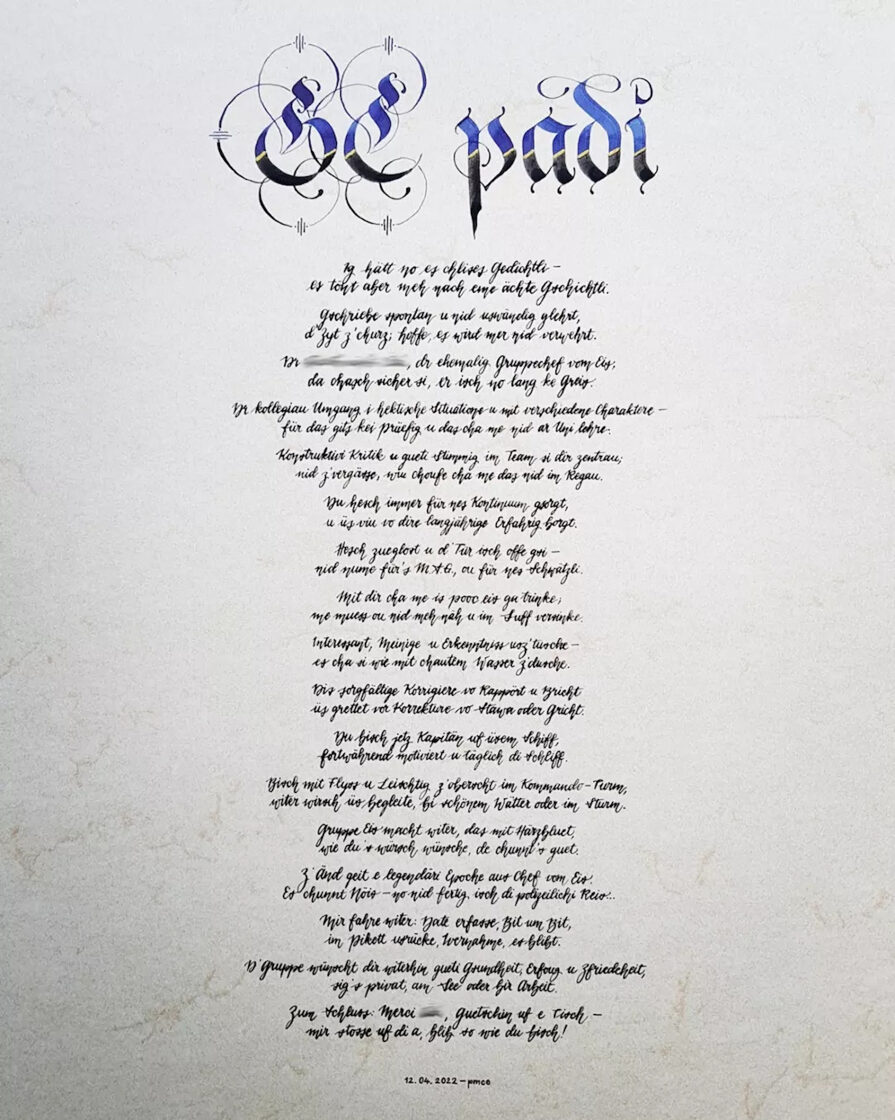 GC padi
Ig hätt no es chlises Gedichtli –
es tönt aber meh nach eine ächte Gschichtli.
Gschriebe spontan u nid uswändig glehrt,
d'Zyt z'churz; hoffe, es wird mer nid verwehrt.
Dr , dr ehemalig Gruppechef vom Eis;
da chasch sicher si, er isch no lang ke Greis.
Dr kollegiau Umgang i hektische Situatione u mit verschiedene Charaktere –
für das gits kei Prüefig u das cha me nid ar Uni lehre.
Konstruktivi Kritik u gueti Stimmig im Team si dir zentrau;
nid z'vergässe, wiu choufe cha me das nid im Regau.
Du hesch immer für nes Kontinuum gsorgt,
u üs viu vo dire langjährige Erfahrig borgt.
Hesch zueglost u d'Tür isch offe gsi –
nid nume für's M.A.G., ou für nes Schwätzli.
Mit dir cha me is pooc eis ga trinke;
me muess ou nid meh näh u im Suff versinke.
Interessant, Meinige u Erkenntniss usz'tusche –
es cha si wie mit chautem Wasser z'dusche.
Dis sorgfältige Korrigiere vo Rappört u Bricht
üs grettet vor Korrekture vo Stawa oder Gricht.
Du bisch jetz Kapitän uf üsem Schiff,
fortwährend motiviert u täglich di Schliff.
Bisch mit Flyss u Leischtig z'oberscht im Kommando-Turm,
witer wirsch üs begleite, bi schönem Wätter oder im Sturm.
Gruppe Eis macht witer, das mit Härzbluet,
wie du's würsch wünsche, de chunnt's guet.
Z'Änd geit e legendäri Epoche aus Chef vom Eis.
Es chunnt Nöis – no nid fertig isch di polizeilichi Reis...
Mir fahre witer: Date erfasse, Bit um Bit,
im Pikett usrücke, Ivernahme, es blibt.
D'Gruppe wünscht dir witerhin gueti Gsundheit, Erfoug u Zfriedeheit,
sig's privat, am See oder bir Arbeit.
Zum Schluss: Merci , Guetschin uf e Tisch –
mir stosse uf di a, blib so wie du bisch!
12.04.2022 – pmco